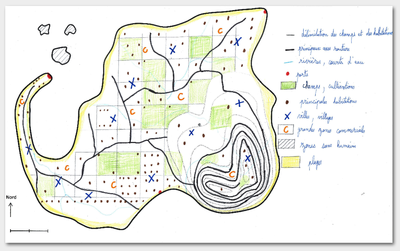 délimitation des champs et des habitations
principaux axes routiers
rivières, courts d'eau
ports
champs, cultivations
principales habitations
villes, villages
grandes zones commerciales
zones sans humains
plages
Nord
C
C
C
C
C
C
C
C
X
X
X
X
X
X
X
X
X
X